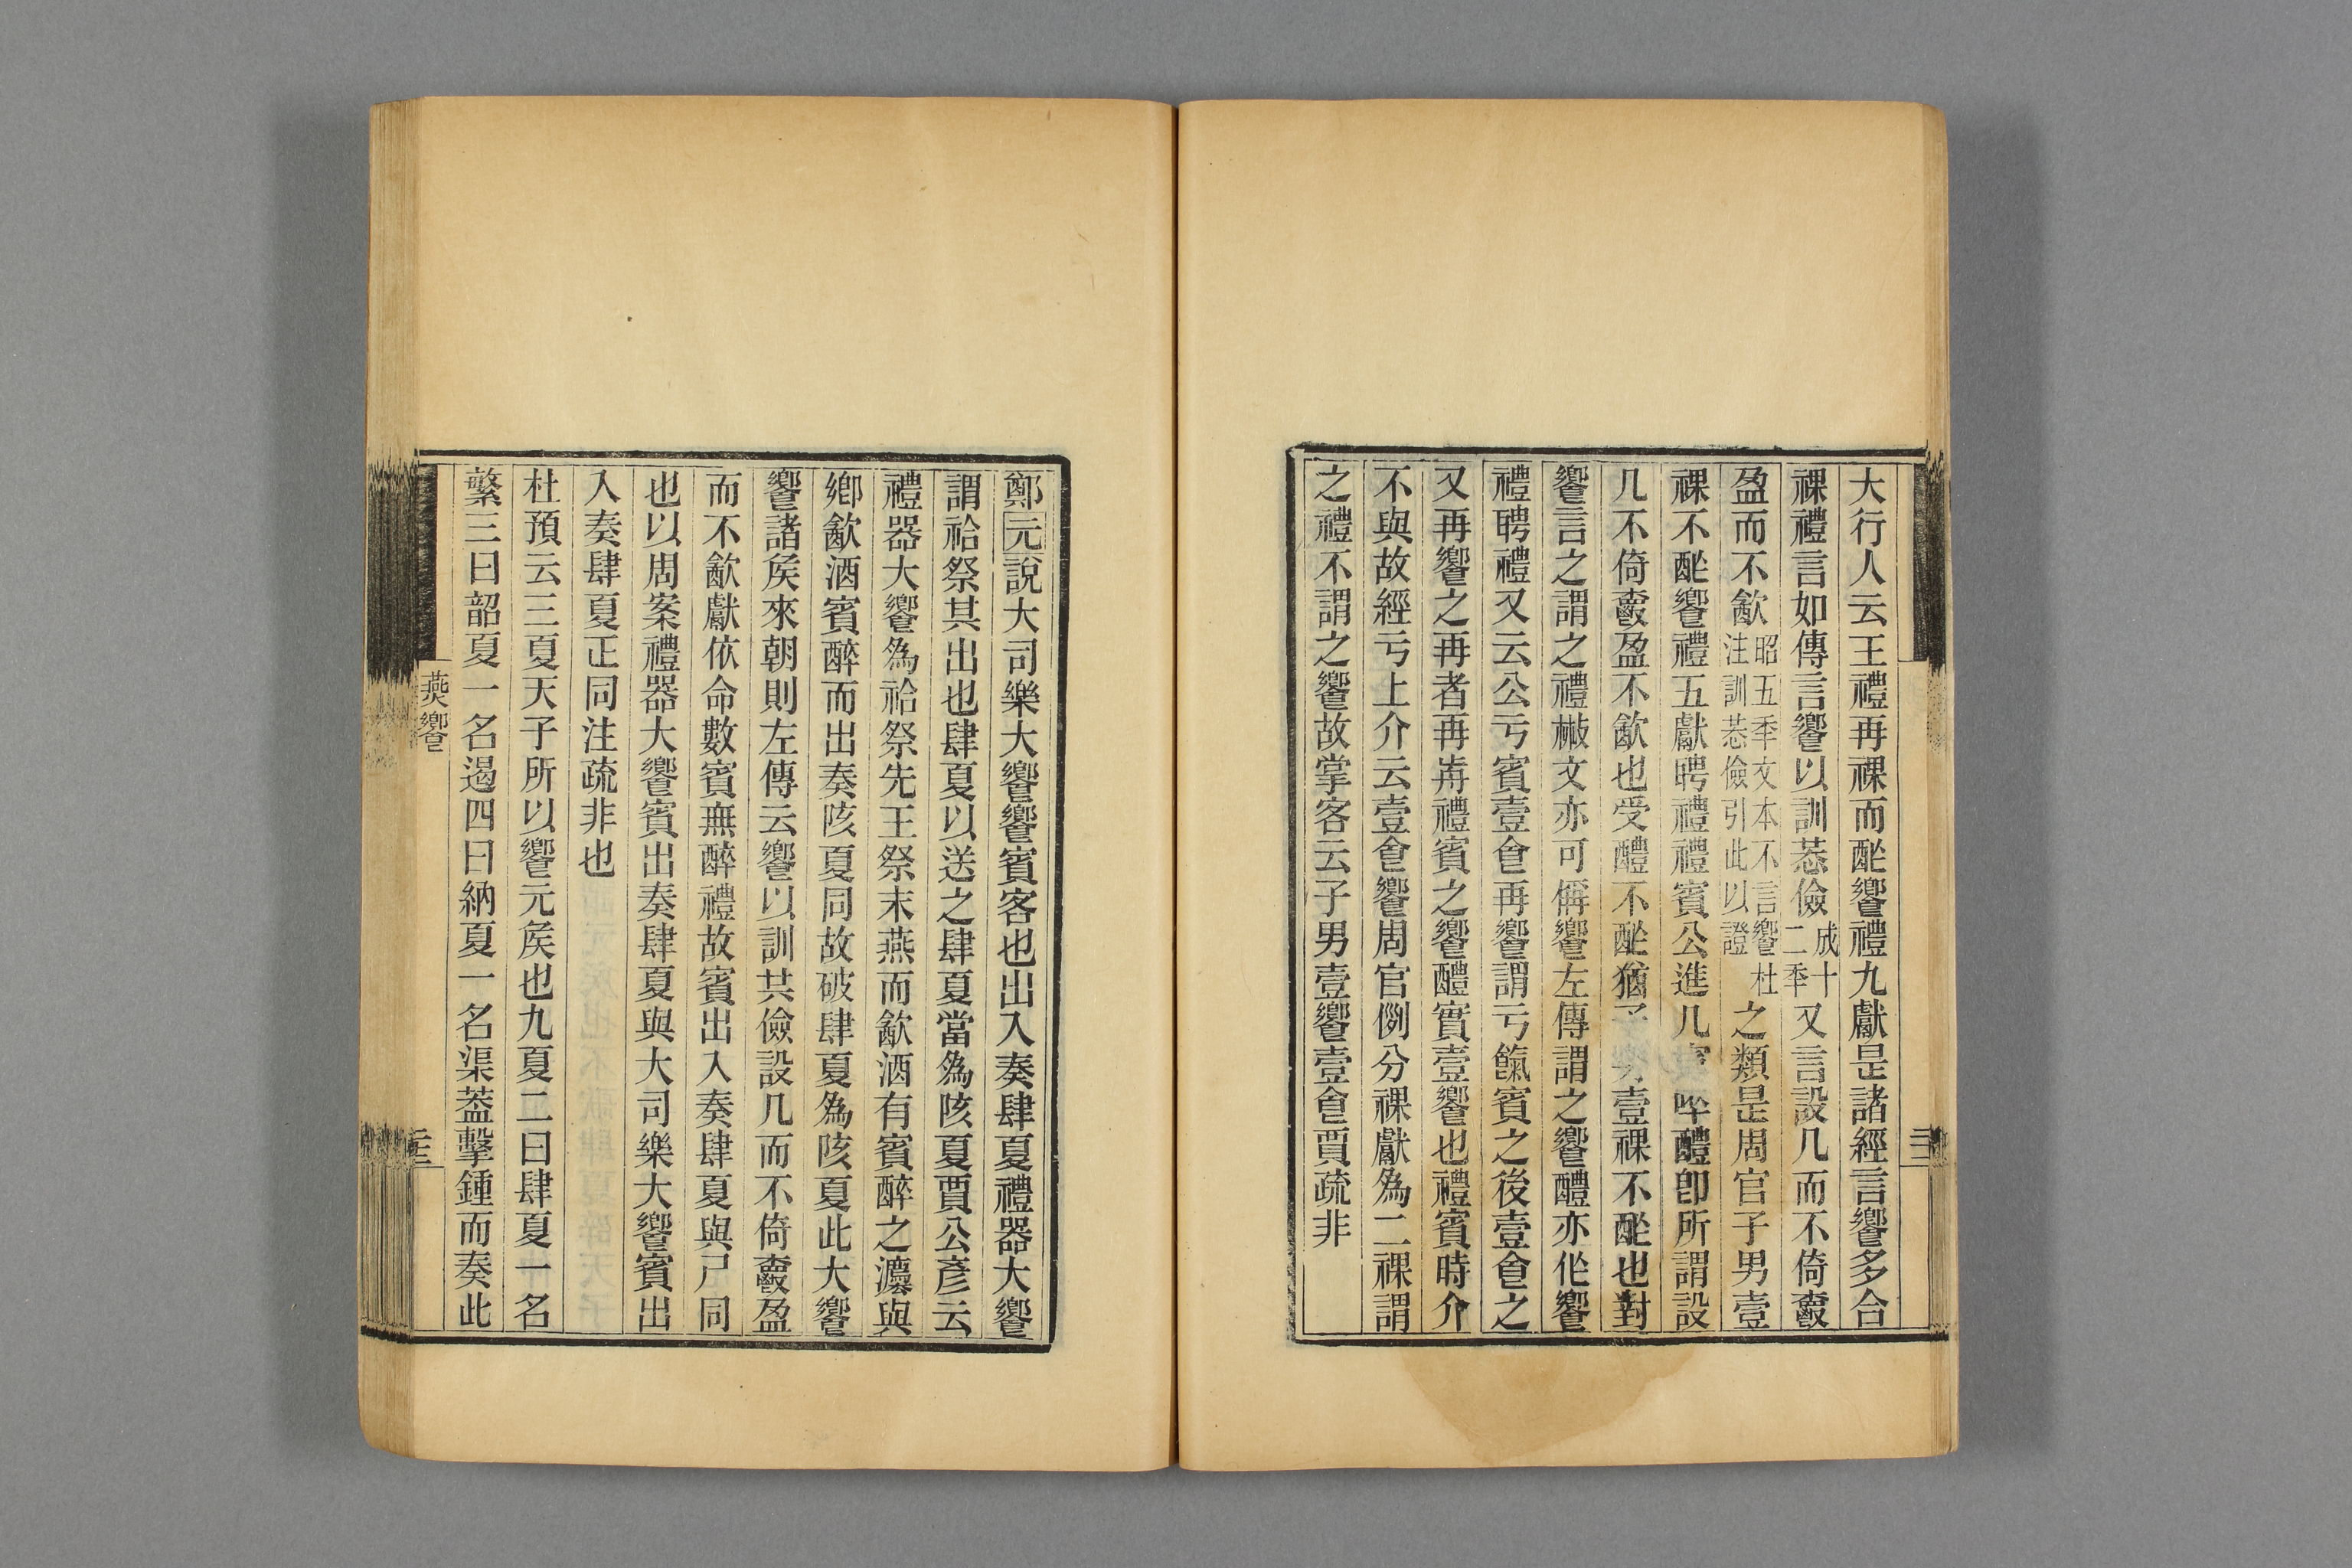 大行人云王禮再祼而酢饗禮九獻是諸經言饗多合
祼禮言如傳言饗以訓恭儉成十二季又言設几而不倚爵
盈而不飲昭五季文本不言饗杜注訓恭儉引此以證之類是周官子男壹
祼不酢饗禮五獻聘禮禮賓公進几賓啐醴即所謂設
几不倚爵盈不飲也受醴不酢猶子男壹祼不酢也對
饗言之謂之禮散文亦可偁饗左傳謂之饗醴亦作饗
禮聘禮又云公亏賓壹食再饗謂亏餼賓之後壹食之
又再饗之再者再歬禮賓之饗醴實壹饗也禮賓時介
不與故經亏上介云壹食饗周官例分祼獻為二祼謂
之禮不謂之饗故掌客云子男壹饗壹食賈疏非
鄭元說大司樂大饗饗賓客也出入奏肆夏禮器大饗
謂祫祭其出也肆夏以送之肆夏當為陔夏賈公彥云
禮器大饗為祫祭先王祭末燕而飲酒有賓醉之灋與
鄉飲酒賓醉而出奏陔夏同故破肆夏為陔夏此大饗
饗諸矦來朝則左傳云饗以訓共儉設几而不倚爵盈
而不飲獻依命數賓無醉禮故賓出入奏肆夏與尸同
也以周案禮器大饗賓出奏肆夏與大司樂大饗賓出
入奏肆夏正同注疏非也
杜預云三夏天子所以饗元矦也九夏二曰肆夏一名
繁三曰韶夏一名遏四曰納夏一名渠葢擊鍾而奏此
燕饗